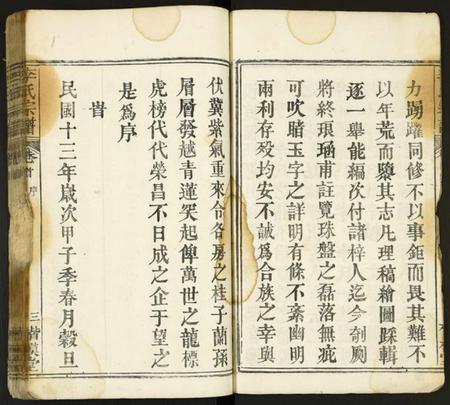 力踢躍同修不以事鉅而畏其難不
以年荒而隳其志凡理稿繪圖踩輯
逐一舉能編次付諸梓人迄今剞劂
將終瑣瑀甫註覽珠盤之磊落無疵
可吹睹玉字之詳明有條不紊幽明
兩利存殁均安不誠爲合族之幸與
伏冀紫氣重來令各房之桂子蘭孫
層層發越青蓮突起俾萬世之龍標
虎榜代代榮昌不日成之企于望之
是爲序
旹
民國十三年歲次甲子季春月榖旦
李氏宗譜
卷首
序
三